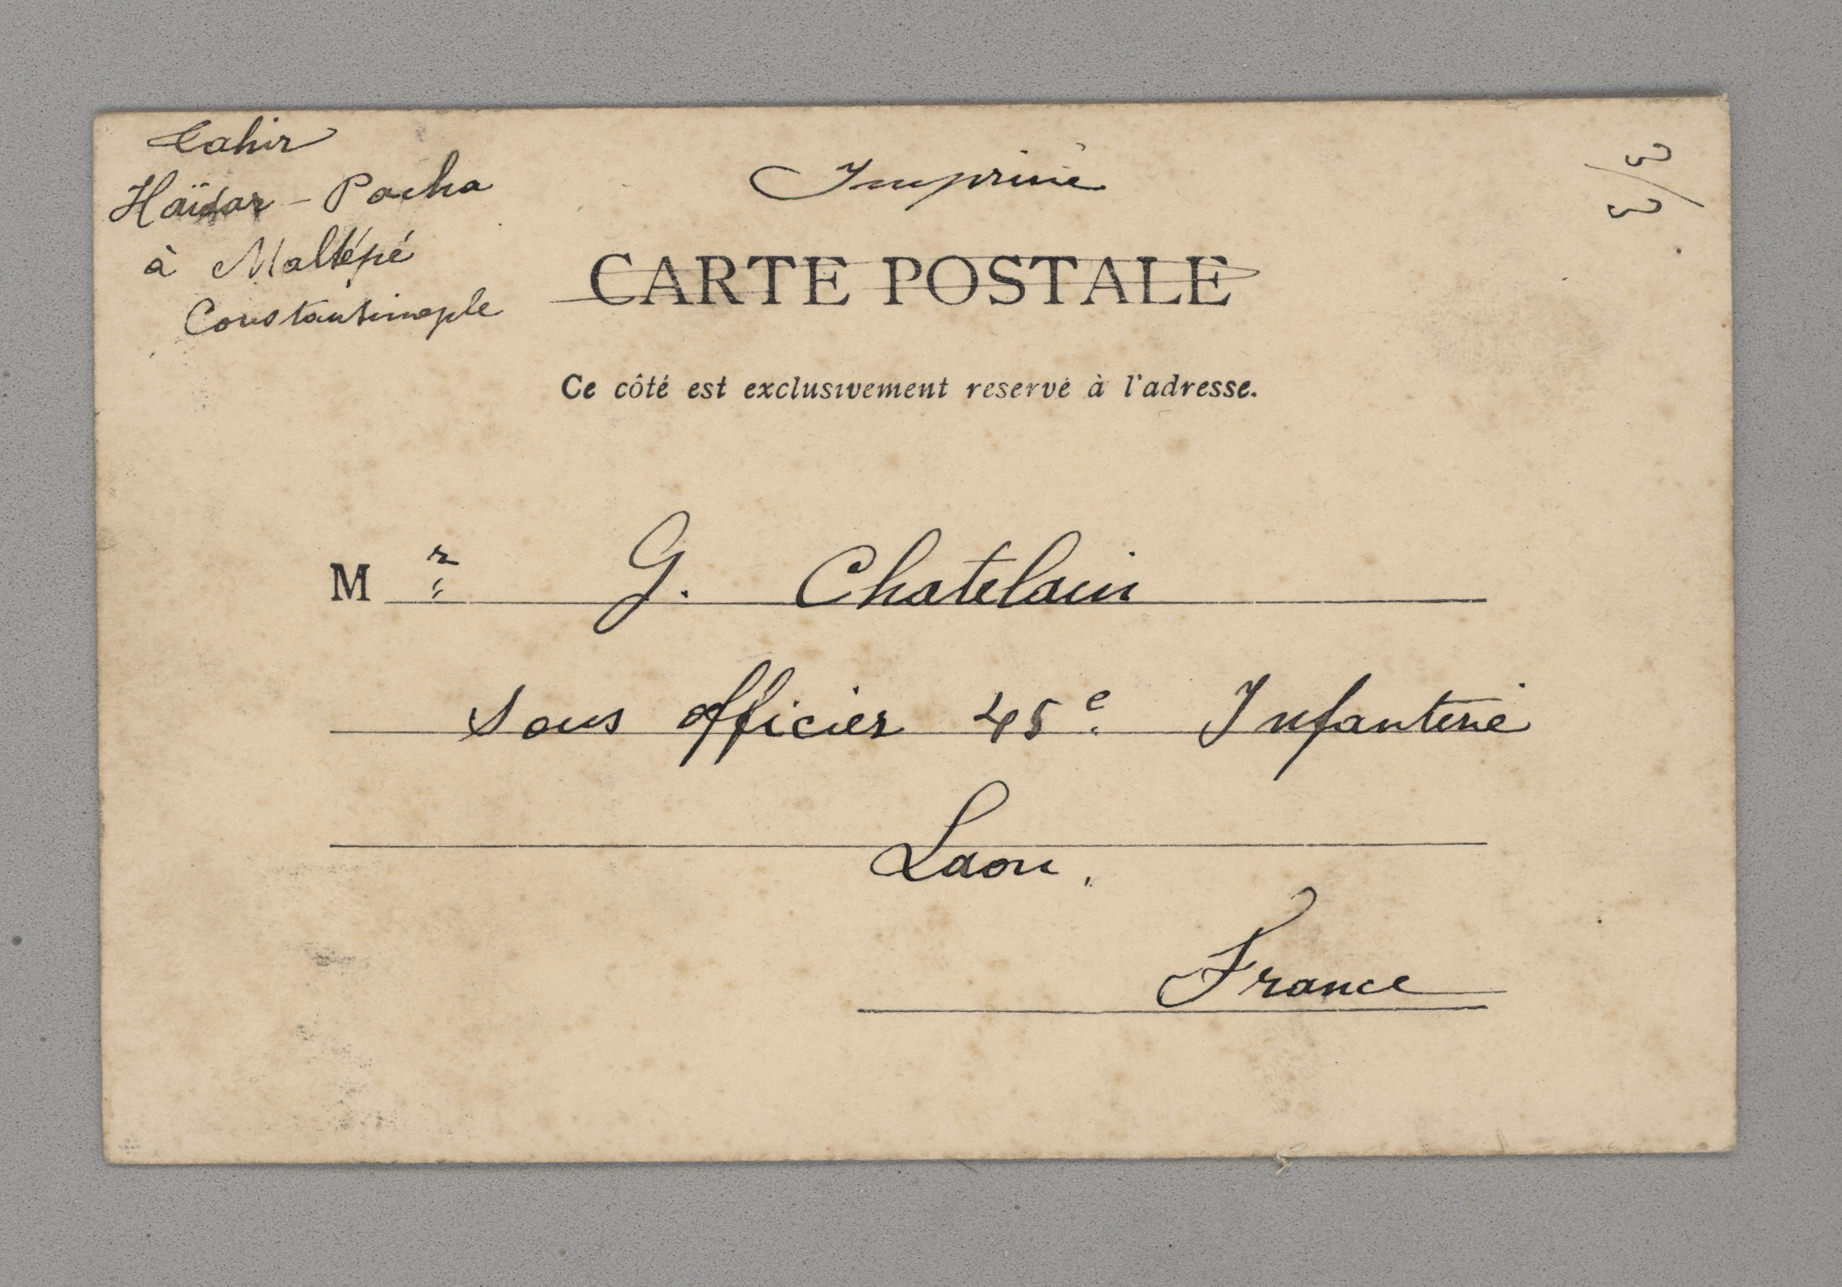 Tahir
Haïdar - Pacha
à Maltépé
Constantinople
Imprimé
CARTE POSTALE
Ce côté est exclusivement reservé à l'adresse.
M r G. Chatelain
sous officier 45e. Infanterie
Laon.
France